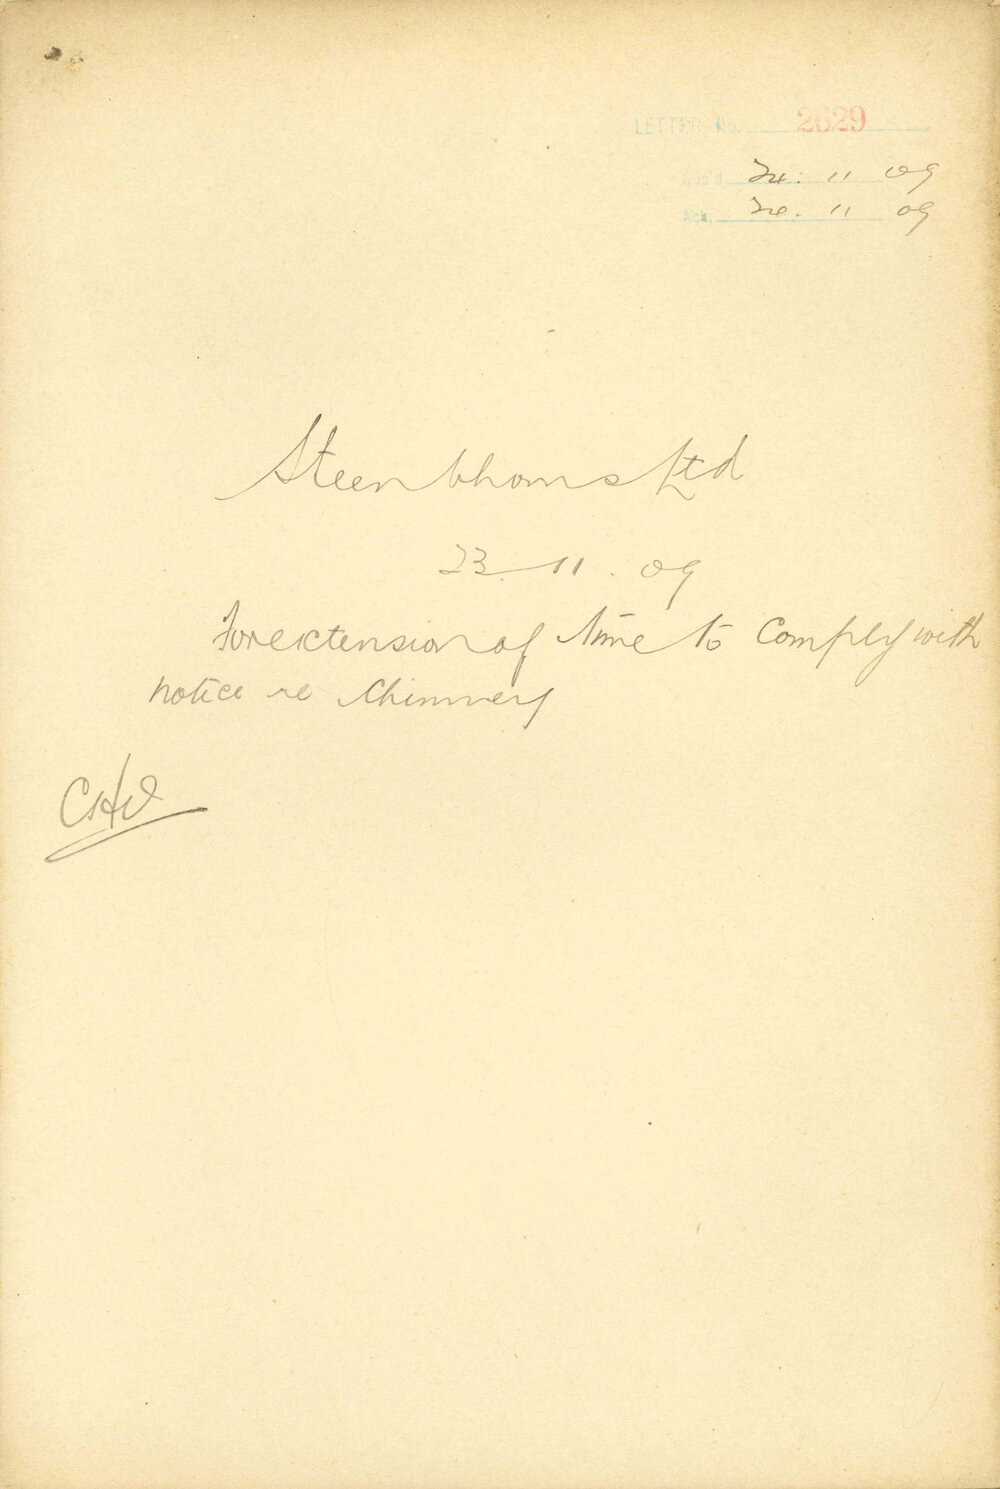 LETTER No. 2629
Rec'd 24. 11 09
Ack. 24. 11 09
Steenbhoms Ltd
23. 11. 09
For extension of time to Comply with
notice re Chimney